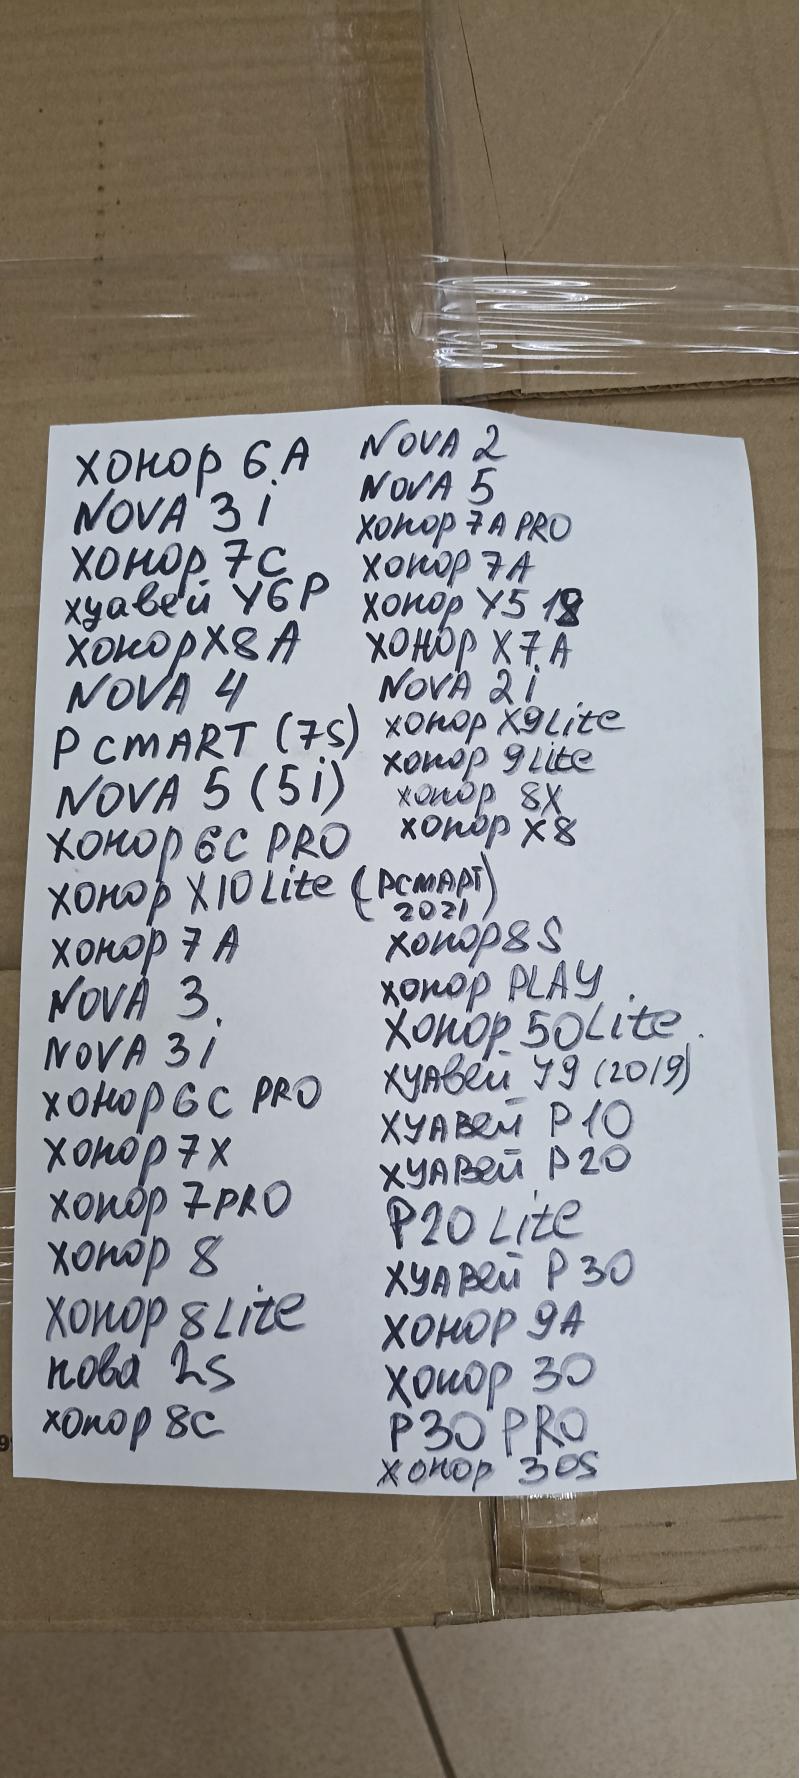 хонор 6A
NOVA 3i
хонор 7C
хуавей Y6P
хонор X8A
NOVA 4
P СМАRT (7S)
NOVA 5 (5i)
хонор 6C PRO
хонор X10 Lite (PСМАРТ
2021)
хонор 7A
NOVA 3.
NOVA 3i
хонор 6C PRO
хонор 7X
хонор 7 PRO
хонор 8
хонор 8 Lite
нова 2S
хонор 8C
NOVA 2
NOVA 5
хонор 7A PRO
хонор 7A
хонор Y5 18
хонор X7A
NOVA 2i
хонор X9 Lite
хонор 9 Lite
хонор 8X
хонор X8
хонор 8S
хонор PLAY.
хонор 50 Lite.
хуавей Y9 (2019)
хуавей P10
хуавей P20
P20 Lite
хуавей P30
хонор 9A
хонор 30
P30 PRO
хонор 30S